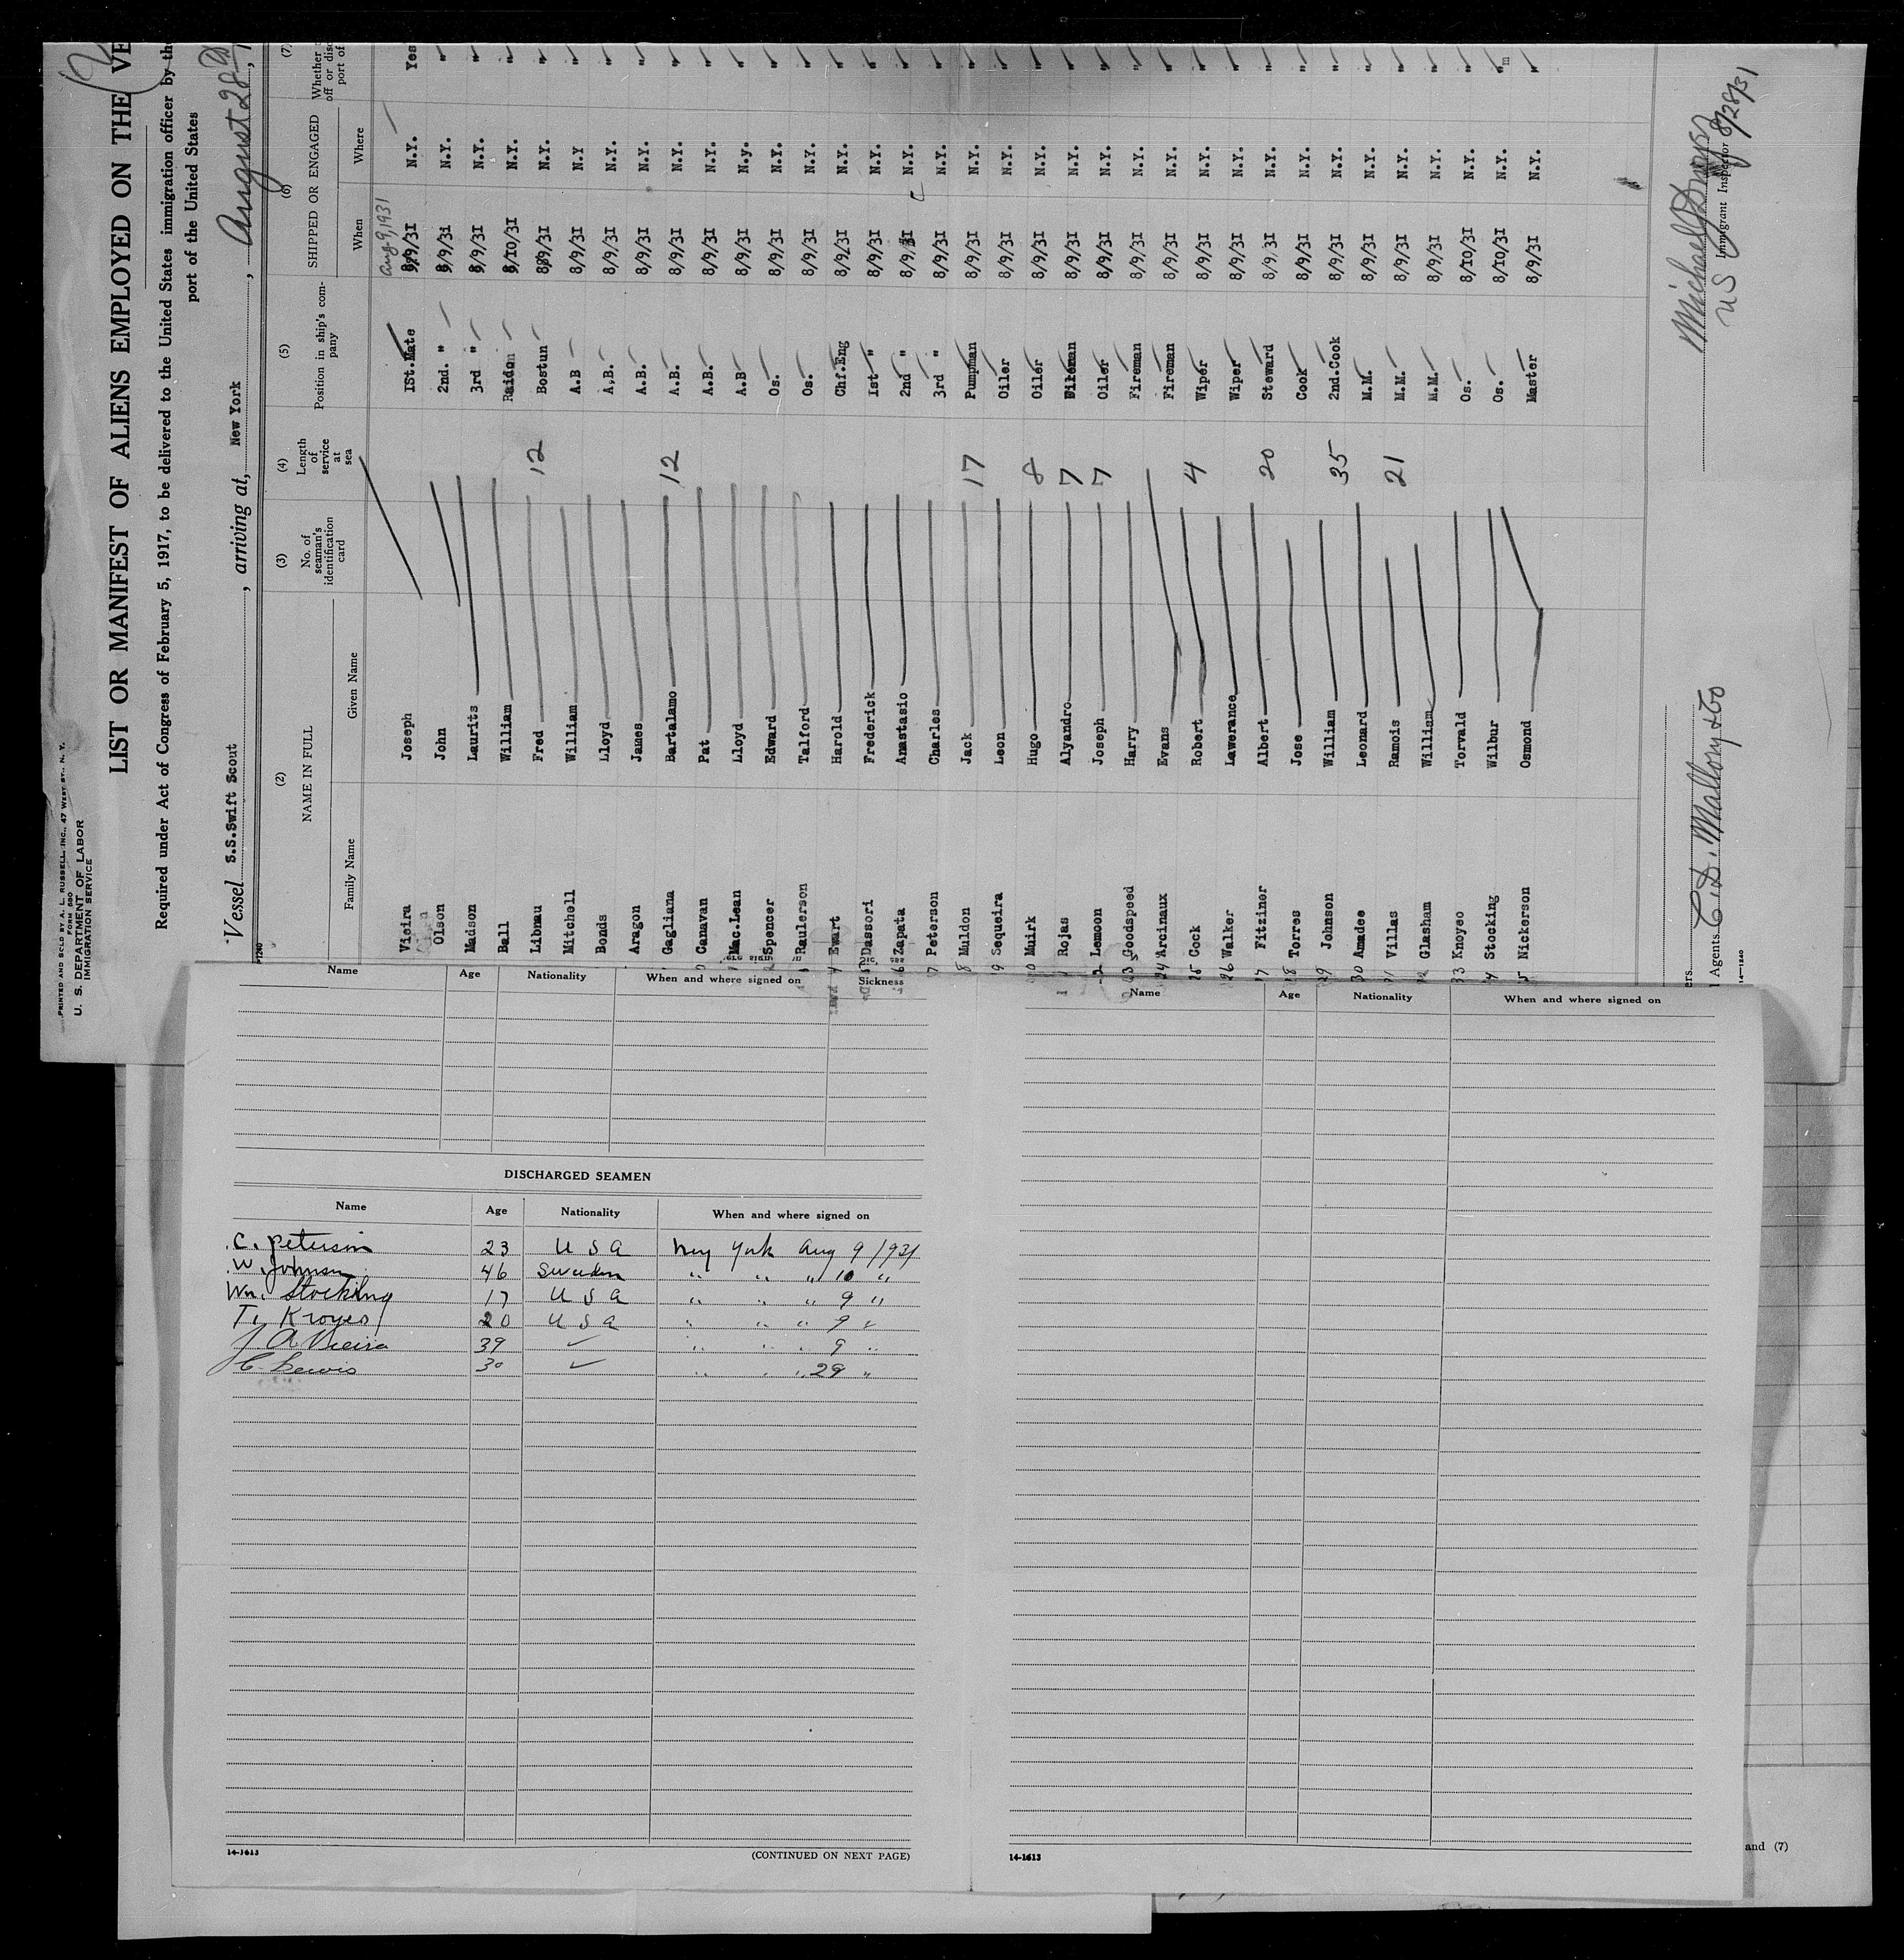 PRINTED AND SOLD BY A. L. RUSSELL, INC., 47 WEST ST., N. Y.
FORM 680
U. S. DEPARTMENT OF LABOR
IMMIGRATION SERVICE
LIST OR MANIFEST OF ALIENS EMPLOYED ON THE VE
Required under Act of Congress of February 5, 1917, to be delivered to the United States immigration officer by the
port of the United States
Vessel S.S.Swift Scout, arriving at, New York, August 28
(2) (3) (4) (5) (6) (7)
NAME IN FULL No. of seaman's identification card Length of service at sea Position in ship's company SHIPPED OR ENGAGED Whether
Family Name Given Name When Where
Aug 9, 1931
Vieira Joseph ISt.Mate 8/9/3I N.Y. Yes
Olson John 2nd. " 8/9/3I N.Y. "
Madson Laurits 3rd " 8/9/3I N.Y. "
Ball William Raidon 8/I0/3I N.Y. "
Libnau Fred 12 Bostun 8/9/3I N.Y. "
Mitchell William A.B 8/9/3I N.Y "
Bonds Lloyd A.B. 8/9/3I N.Y. "
Aragon James A.B. 8/9/3I N.Y. "
Gagliana Bartalamo 12 A.B. 8/9/3I N.Y. "
Canavan Pat A.B. 8/9/3I N.Y. "
Mac.Lean Lloyd A.B 8/9/3I N.y. "
Spencer Edward Os. 8/9/3I N.Y. "
Raulerson Talford Os. 8/9/3I N.Y. "
Ewart Harold Chf.Eng 8/9/3I N.Y. "
Dassori Frederick Ist " 8/9/3I N.Y. "
6 Zapata Anastasio 2nd " 8/9/3I N.Y. "
7 Peterson Charles 3rd " 8/9/3I N.Y. "
8 Muldon Jack 17 Pumpman 8/9/3I N.Y. "
9 Sequeira Leon Oiler 8/9/3I N.Y. "
0 Muirk Hugo 8 Oiler 8/9/3I N.Y. "
1 Rojas Alyandro 7 8/9/3I N.Y. "
2 Lemoon Joseph 7 Oiler 8/9/3I N.Y. "
23 Goodspeed Harry Fireman 8/9/3I N.Y. "
24 Arcinaux Evans Fireman 8/9/3I N.Y. "
25 Cock Robert 4 Wiper 8/9/3I N.Y. "
26 Walker Lawerance Wiper 8/9/3I N.Y. "
27 Fitziner Albert 20 Steward 8/9.3I N.Y. "
28 Torres Jose Cook 8/9/3I N.Y. "
29 Johnson William 35 2nd.Cook 8/9/3I N.Y. "
30 Amadee Leonard M.M. 8/9/3I N.Y. "
31 Villas Ramois 21 M.M. 8/9/3I N.Y. "
32 Glasham William M.M. 8/9/3I N.Y. "
33 Knoyeo Torvald Os. 8/10/3I N.Y. "
4 Stocking Wilbur Os. 8/10/3I N.Y. "
5 Nickerson Osmond Master 8/9/3I N.Y. "
ers
Agents C. D. Mallory & Co
US Immigrant Inspector 8/28/31
14—1240
Name Age Nationality When and where signed on Sickness
DISCHARGED SEAMEN
Name Age Nationality When and where signed on
C. Peterson 23 U S A New York Aug 9 1931
W. Johnson 46 Sweden " " " 10 "
Wm. Stocking 17 U S A " " " 9 "
T. Kroyeo 20 U S A " " " 9 "
J. A Vieira 39 ✓ " " " 9 "
C. Lewis 30 ✓ " " " 29 "
14-1613
(CONTINUED ON NEXT PAGE)
Name Age Nationality When and where signed on
14-1613
and (7)